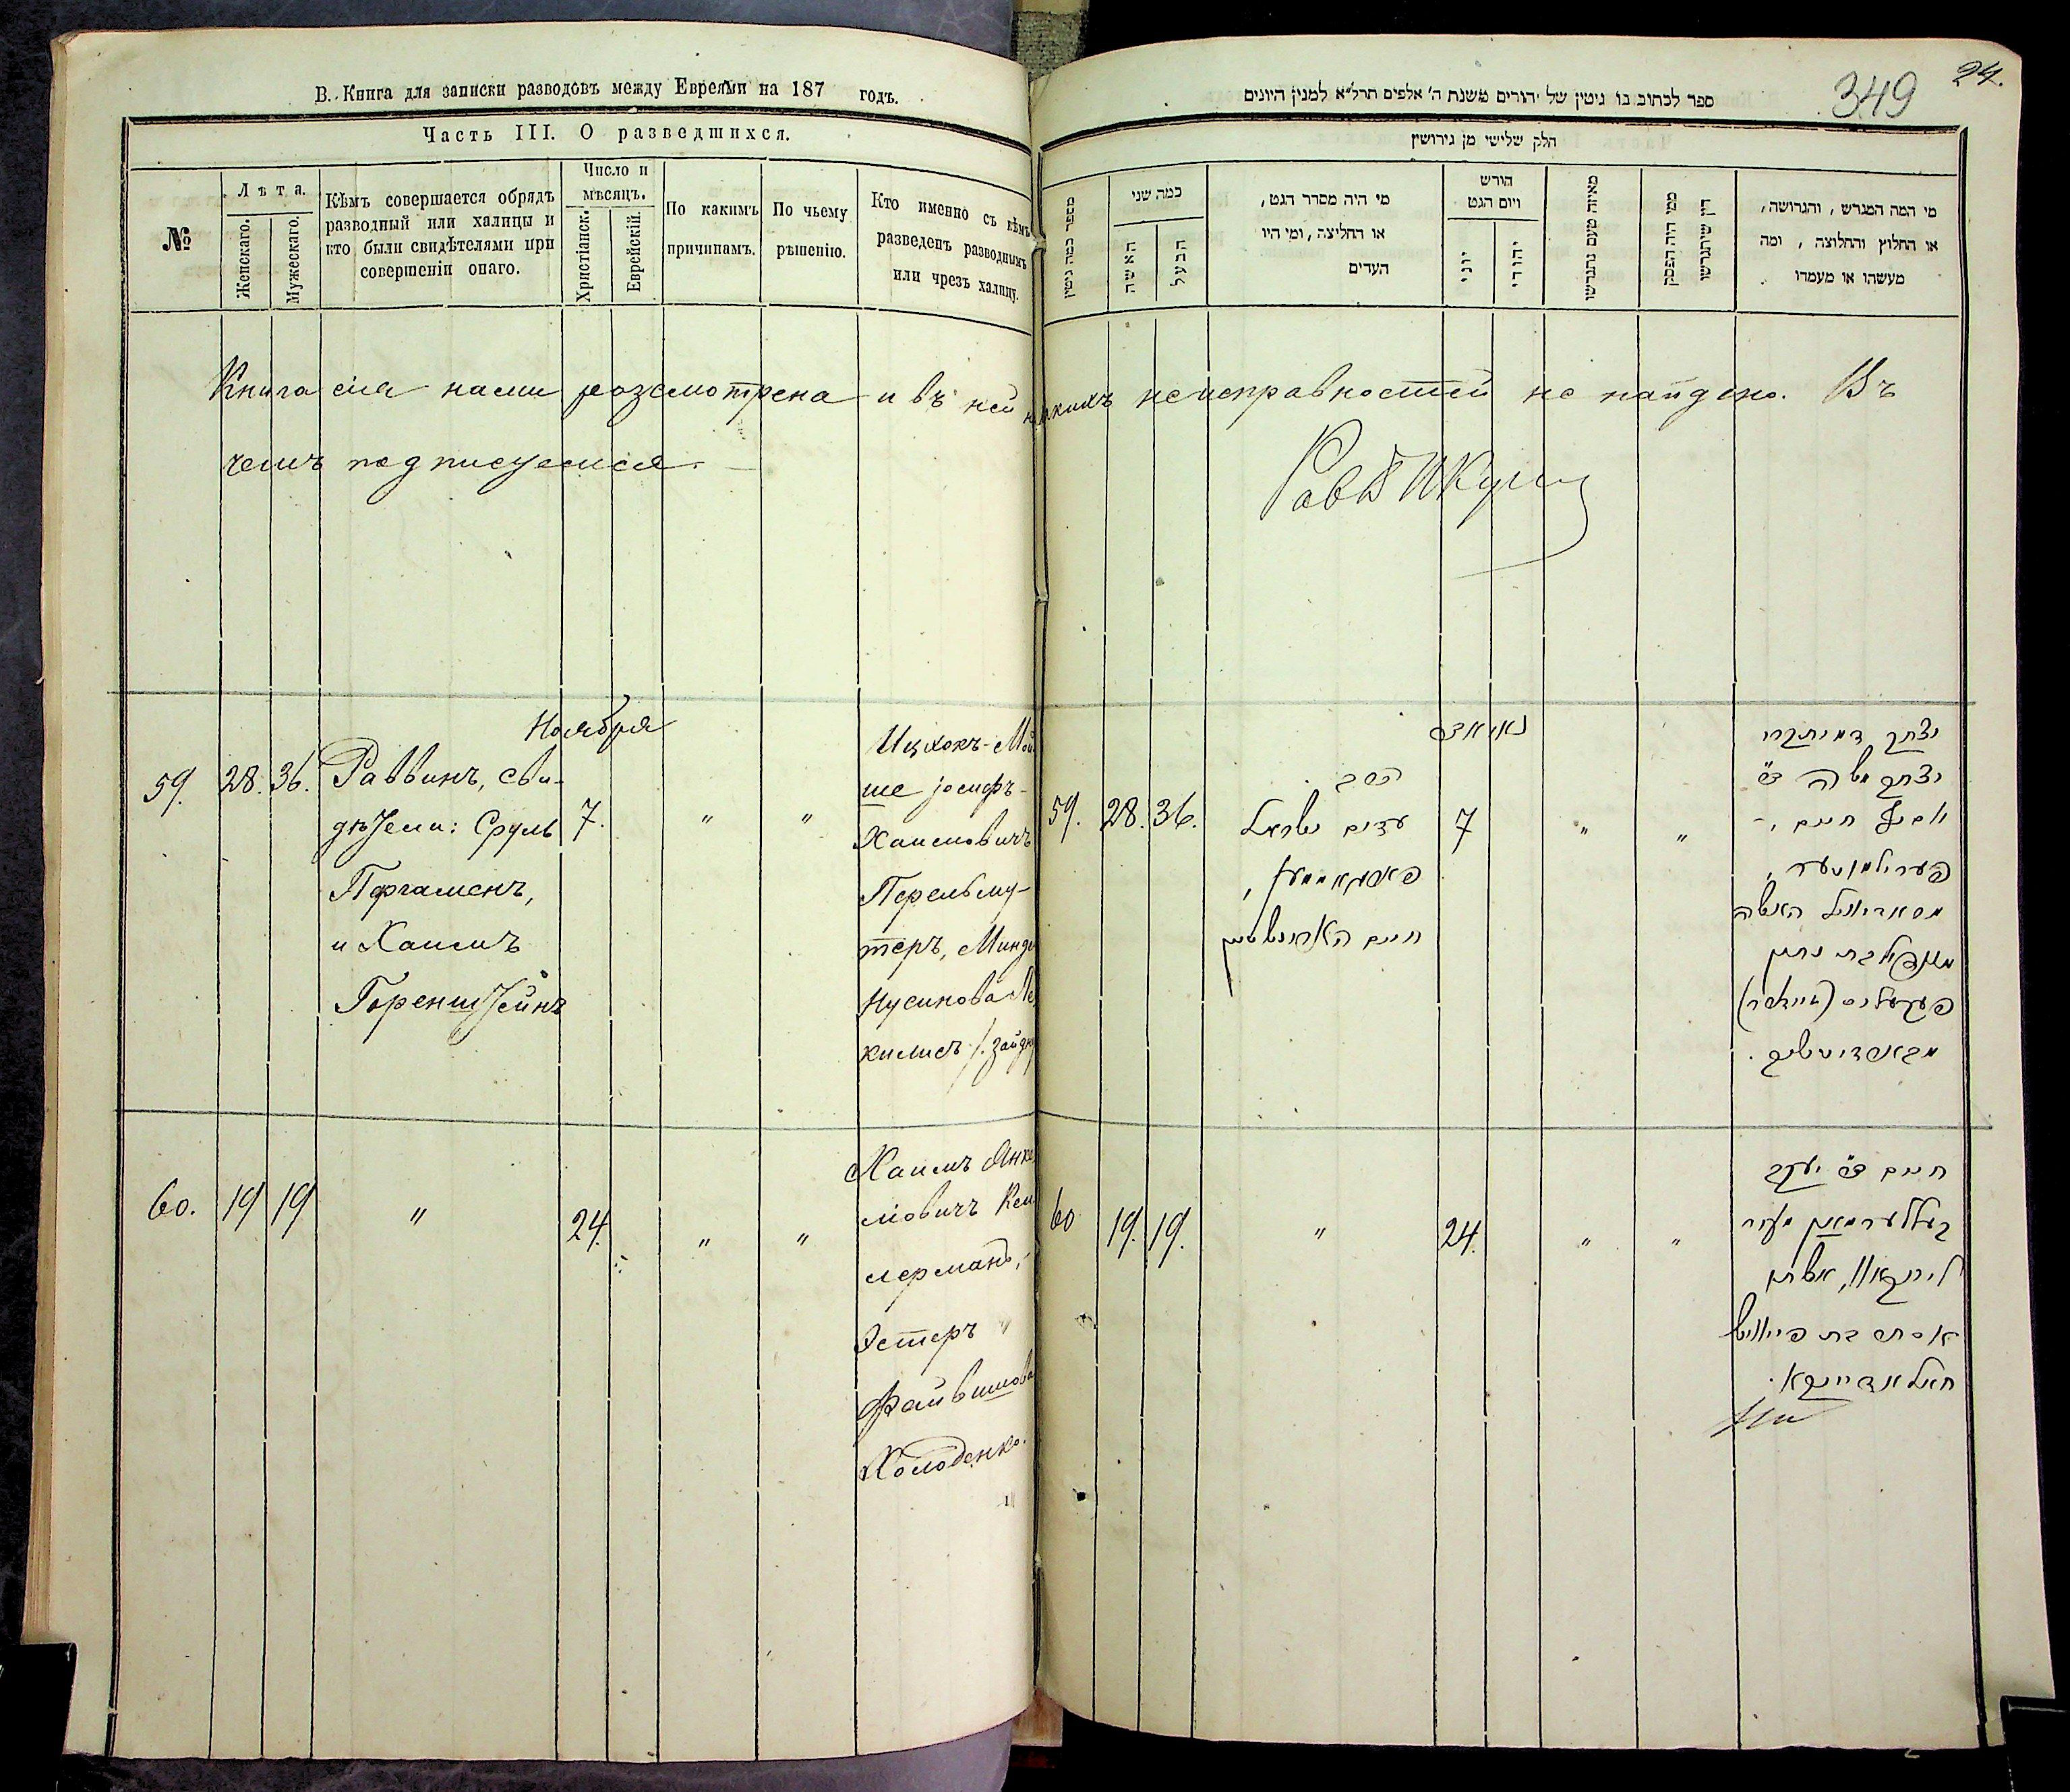 В. Книга для записки разводовъ между Евреями на 187 годъ.
Часть III. О разведшихся.
№
Лѣта.
Женскаго.
Мужескаго.
Кѣмъ совершается обрядъ
разводный или халицы и
кто были свидѣтелями при
совершеніи онаго.
Число и
мѣсяцъ.
Христіанск.
Еврейскій.
По какимъ
причинамъ.
По чьему
рѣшенію.
Кто именно съ кѣмъ
разведенъ разводнымъ
или чрезъ халицу.
349
24.
ספר לכתוב בו גיטין של יהודים משנת ה' אלפים תרל"א למנין היונים
חלק שלישי מן גירושין
מספר כמה גיטין
כמה שני
האשה
הבעל
מי היה מסדר הגט,
או החליצה, ומי היו
העדים
חודש
ויום הגט
יוני
יהודי
מאיזה טעם נתגרשו
ממי היה הפסק
דין שיתגרשו
מי המה המגרש, והגרושה,
או החלוץ והחלוצה, ומה
מעשהו או מעמדו
Книга сія нами розсмотрена и въ ней никакихъ неисправностей не найдено. Въ
чемъ подписуемся.
Ноября
59. 28. 36. Раввинъ, сви-
дѣтели: Сруль
Пергаменъ,
и Хаимъ
Горенштейнъ
7. " "
Ицхокъ-Мой
ше Іосифъ-
Хаимовичъ
Перельму-
теръ,
Нусинова
59. 28. 36.
הרב
עדים ישראל
חיים האرענשטיין
7 " "
יצחק משה ב"
יוסף חיים
פערילמוטער,
האשה
בת נתן
60. 19 19 " 24. " "
Хаимъ Янке
левичъ Кел
лерманъ,
Эстеръ
Файвишова
Холоденко.
60 19. 19. " 24. " "
חיים ב" יעקב
קעללערמאן
אסתר בת פייוויש
חאלאדיינקא.